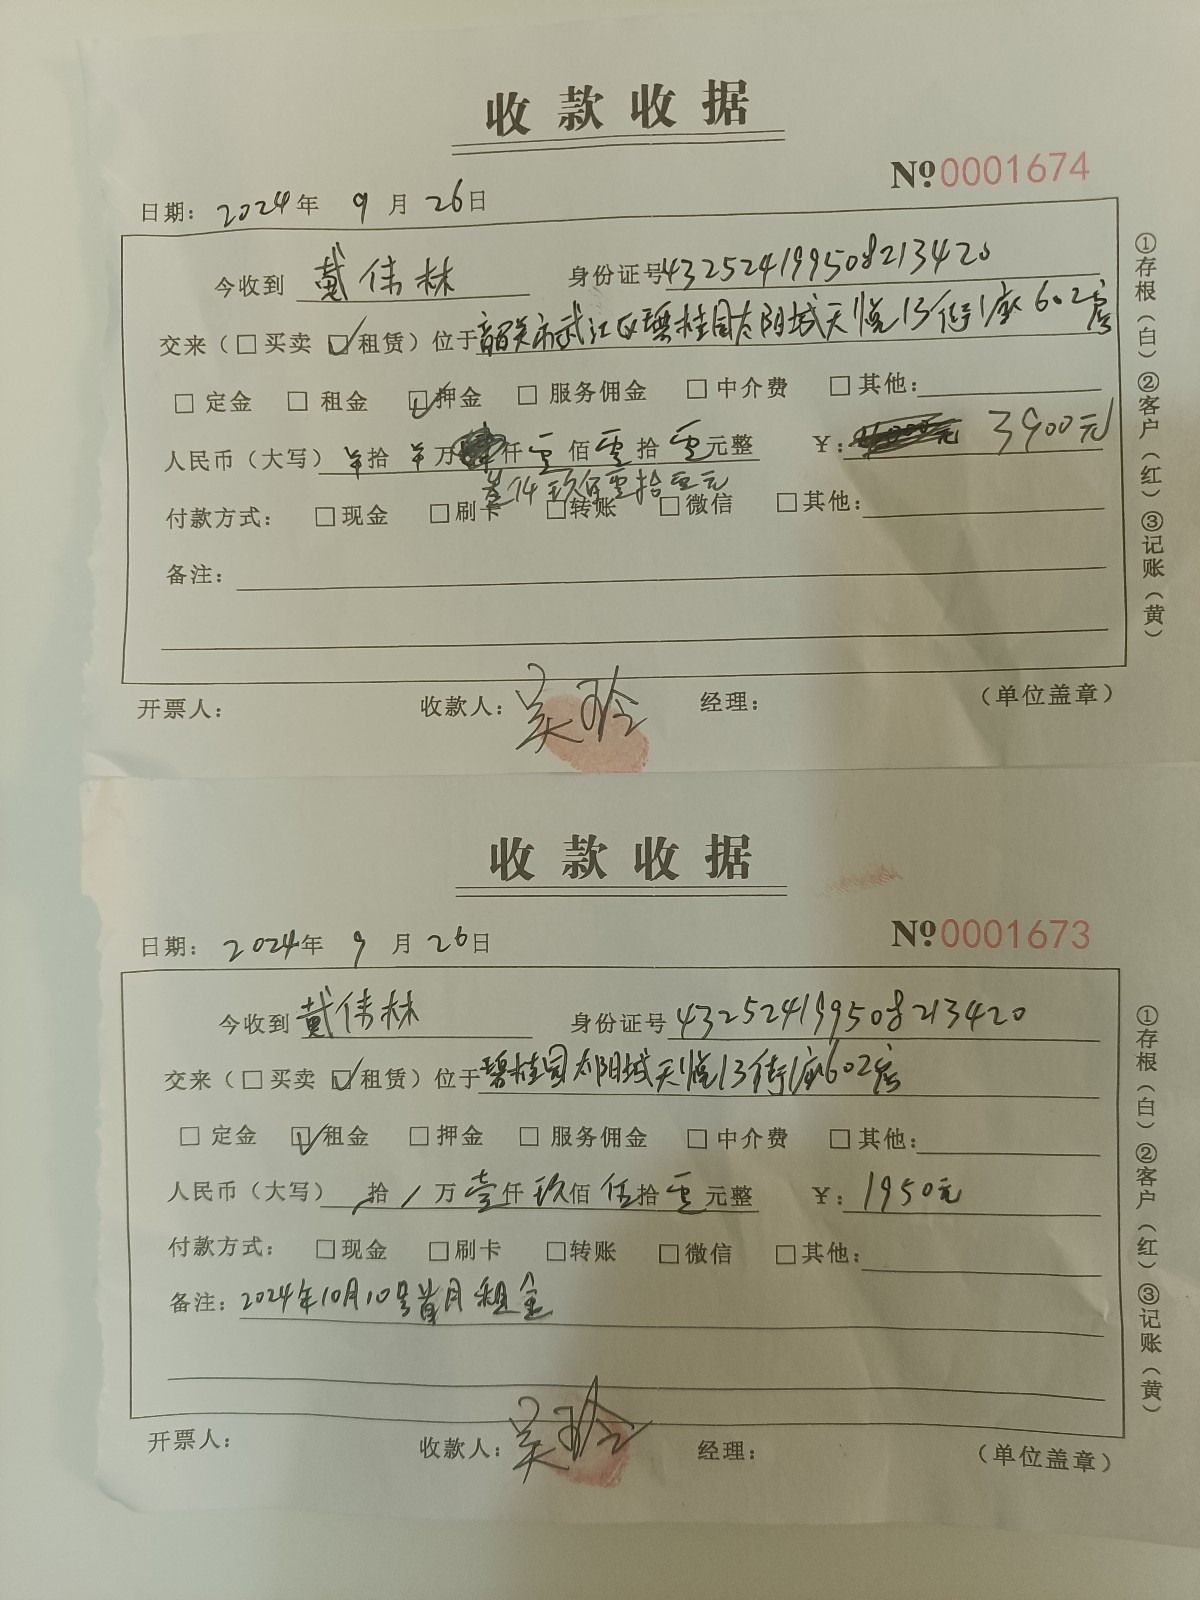 收款收据
Nº 0001674
日期：2024年 9月26日
今收到 戴伟林 身份证号432524199508213420
交来（□买卖 ☑租赁）位于韶关市武江区碧桂园太阳城天悦13街1座602房
□ 定金 □ 租金 ☑押金 □ 服务佣金 □ 中介费 □ 其他：
人民币（大写） 拾 万 仟 零佰零拾零元整 ¥： 3900元
叁仟玖佰零拾零元
付款方式： □现金 □刷卡 □转账 □微信 □其他：
备注：
开票人： 收款人：吴玲 经理： （单位盖章）
①存根（白）②客户（红）③记账（黄）
收款收据
Nº 0001673
日期：2024年 9月26日
今收到 戴伟林 身份证号 432524199508213420
交来（□买卖 ☑租赁）位于碧桂园太阳城天悦13街1座602房
□ 定金 ☑租金 □ 押金 □ 服务佣金 □ 中介费 □ 其他：
人民币（大写） / 拾 / 万壹仟玖佰伍拾零元整 ¥：1950元
付款方式： □现金 □刷卡 □转账 □微信 □其他：
备注：2024年10月10号首月租金
开票人： 收款人：吴玲 经理： （单位盖章）
①存根（白）②客户（红）③记账（黄）